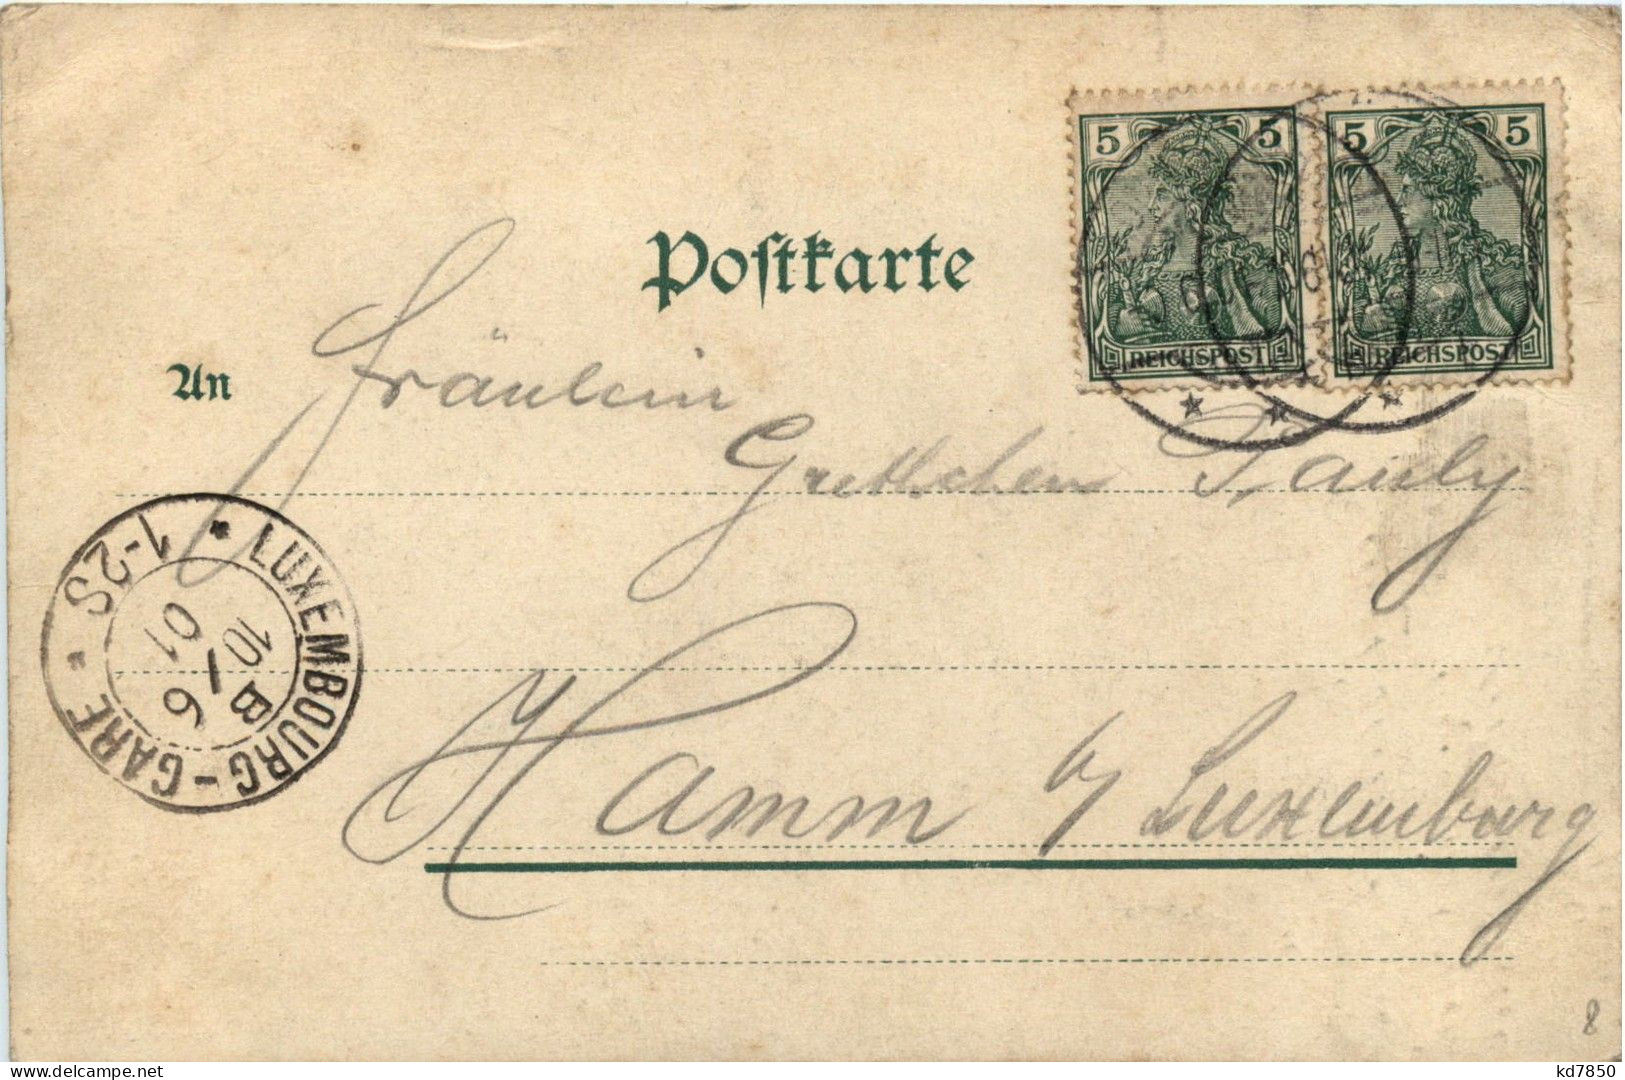 5 5
5 5
REICHSPOST
REICHSPOST
Postkarte
An
Fräulein
Grethchen Pauly
LUXEMBOURG-GARE
1-2S
10 B
6
01
Hamm b/ Luxemburg
8
delcampe.net
kd7850